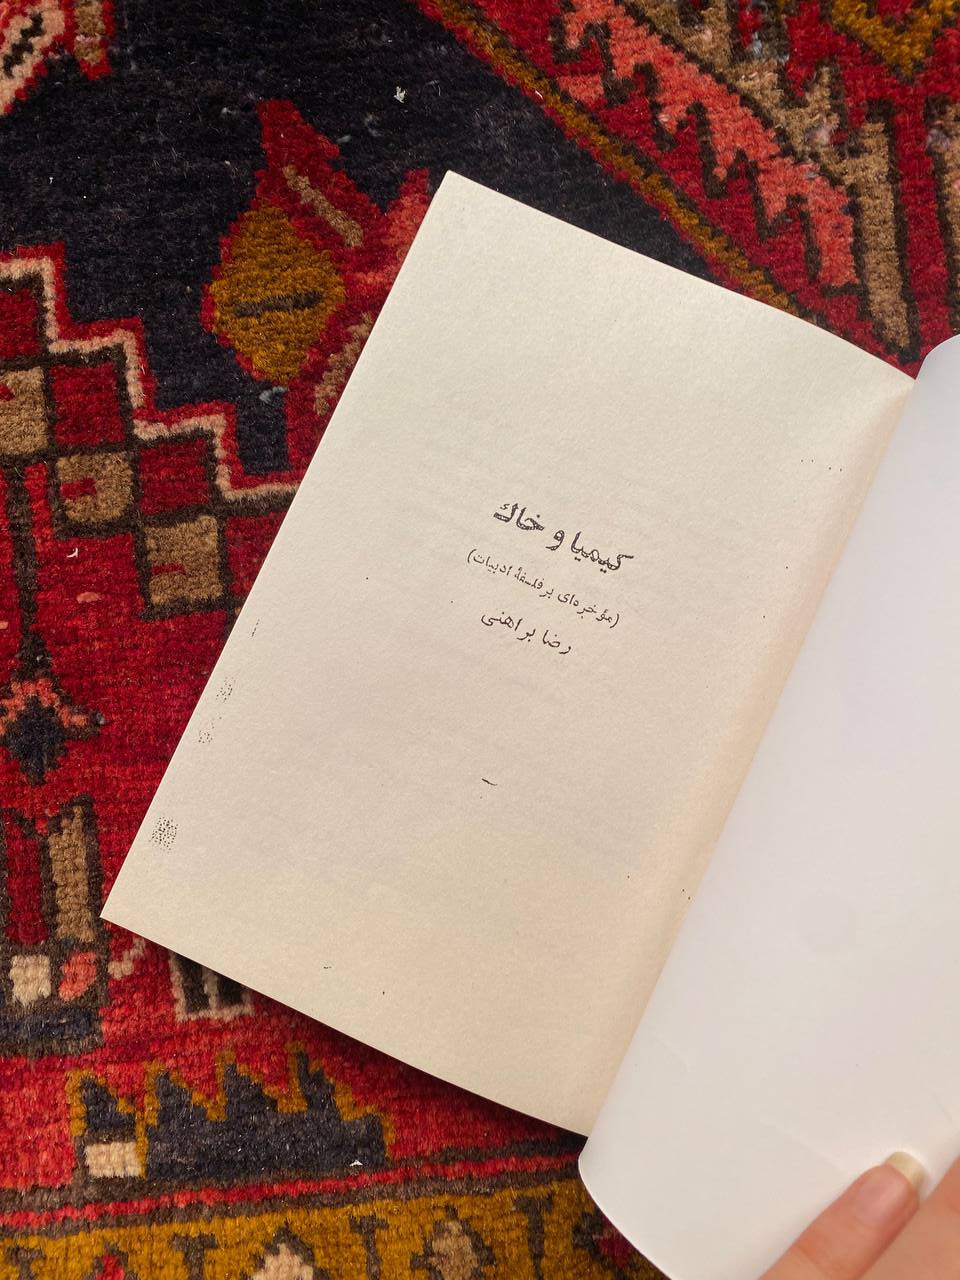 کیمیا و خاك
(مؤخره‌ای بر فلسفهٔ ادبیات)
رضا براهنی